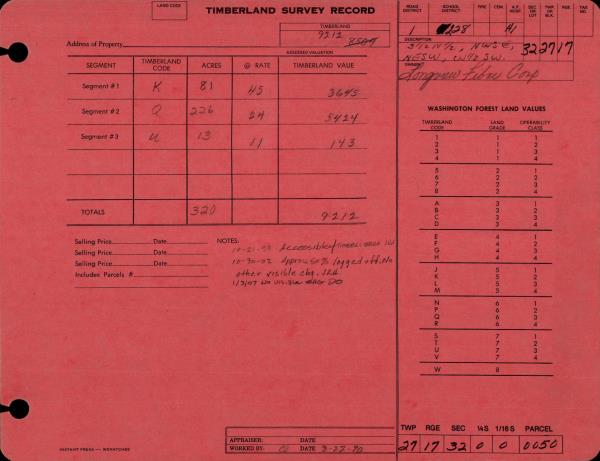 LAND CODE
TIMBERLAND SURVEY RECORD
TIMBERLAND
9212
8509
Address of Property
ASSESSED VALUATION
SEGMENT TIMBERLAND CODE ACRES @ RATE TIMBERLAND VALUE
Segment #1 K 81 45 3645
Segment #2 Q 226 24 5424
Segment #3 U 13 11 143
TOTALS 320 9212
Selling Price Date
Selling Price Date
Selling Price Date
Includes Parcels #
NOTES:
10-21-93 Accessible
10-30-02 Approx 50% logged off. No
other visible chg. JRH
1/3/07 No visible chg DO
APPRAISER: DATE
WORKED BY: DATE 3-27-90
INSTANT PRESS — WENATCHEE
ROAD DISTRICT SCHOOL DISTRICT FIRE CEM. A.P. HOSP. SEC OR LOT TWP. OR BLK. RGE. TAX NO.
228 #1
DESCRIPTION
S1/2 N1/2, NWSE, 32 27 17
NESW, W1/2SW.
OWNER
Longview Fibre Corp
WASHINGTON FOREST LAND VALUES
TIMBERLAND CODE LAND GRADE OPERABILITY CLASS
1 1 1
2 1 2
3 1 3
4 1 4
5 2 1
6 2 2
7 2 3
8 2 4
A 3 1
B 3 2
C 3 3
D 3 4
E 4 1
F 4 2
G 4 3
H 4 4
J 5 1
K 5 2
L 5 3
M 5 4
N 6 1
P 6 2
Q 6 3
R 6 4
S 7 1
T 7 2
U 7 3
V 7 4
W 8
TWP RGE SEC 1/4S 1/16S PARCEL
27 17 32 0 0 0050